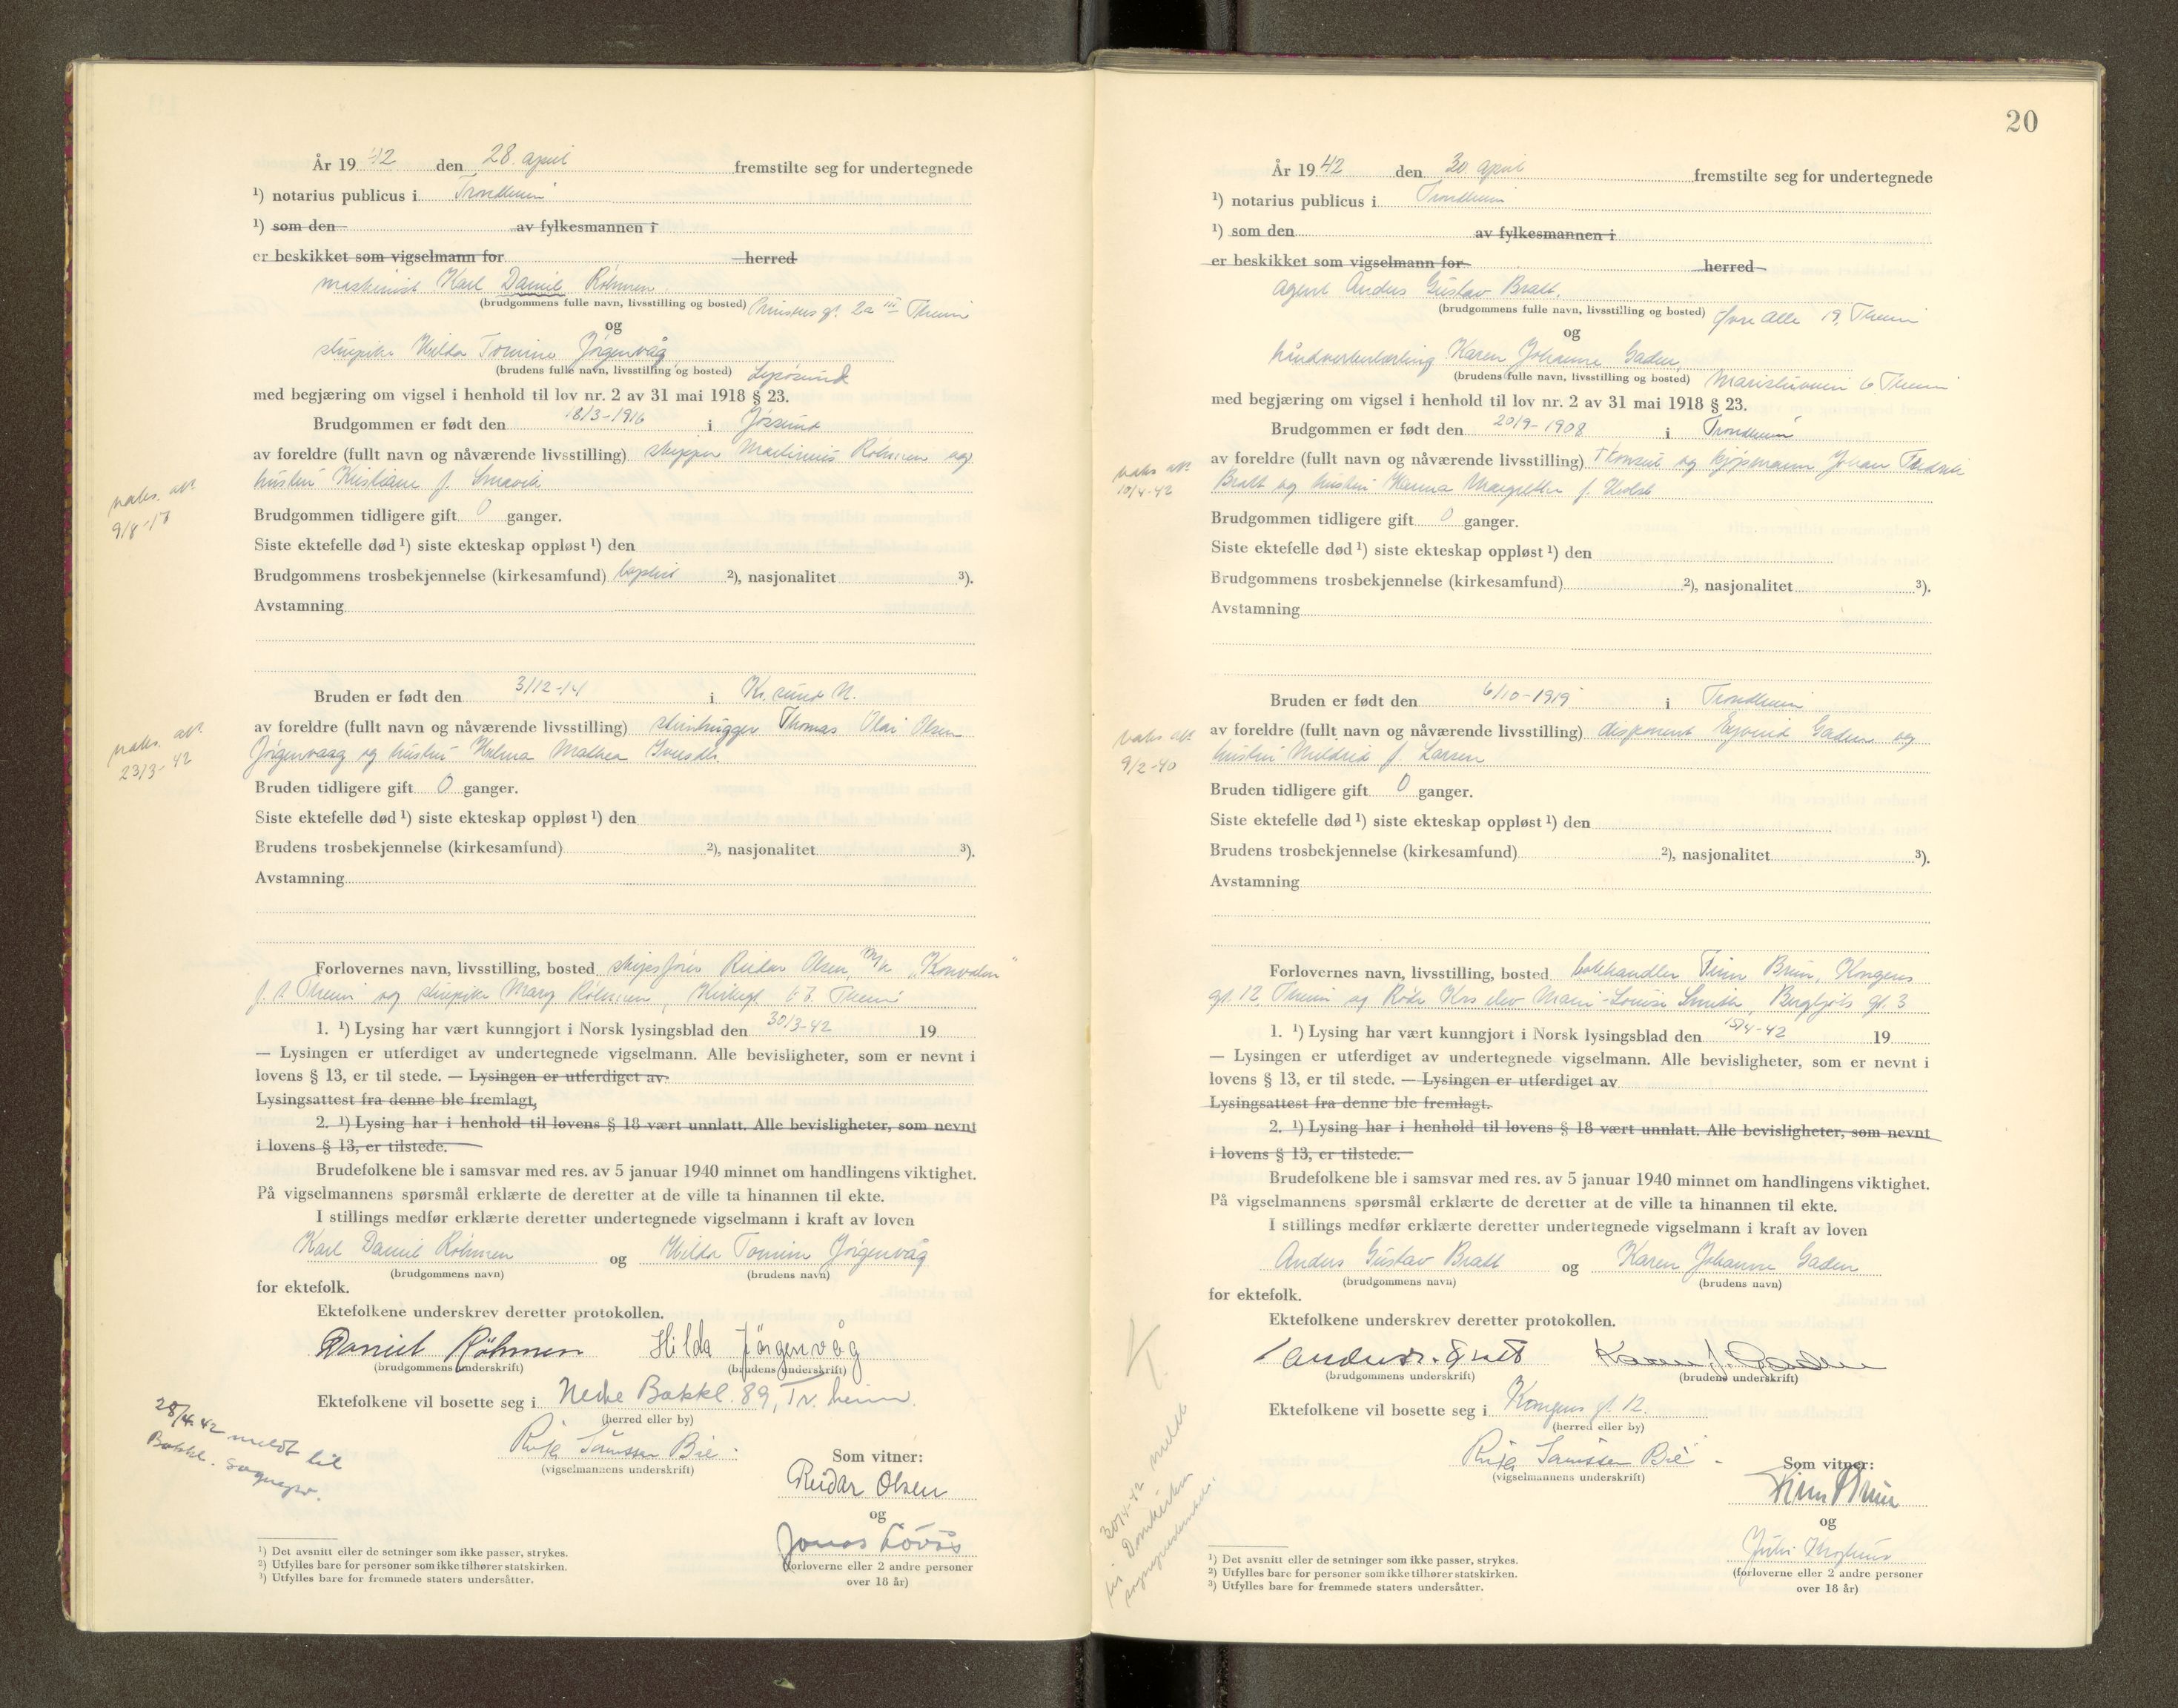 År 19 42 den 28. april fremstilte seg for undertegnede
¹) notarius publicus i Trondheim
¹) som den av fylkesmannen i
er beskikket som vigselmann for herred
maskinist Karl Daniel Röhmen
(brudgommens fulle navn, livsstilling og bosted) gt. 2a III Theim
og
Hilda Tomine Jørgenvåg
(brudens fulle navn, livsstilling og bosted) Lysøsund
med begjæring om vigsel i henhold til lov nr. 2 av 31 mai 1918 § 23.
Brudgommen er født den 18/3-1916 i Jøssund
av foreldre (fullt navn og nåværende livsstilling) skipper Martinius Röhmen og
hustru Kristiane f. Smavik
vaks. att.
9/8-17
Brudgommen tidligere gift 0 ganger.
Siste ektefelle død ¹) siste ekteskap oppløst ¹) den
Brudgommens trosbekjennelse (kirkesamfund) baptist ²), nasjonalitet ³).
Avstamning
Bruden er født den 3/12-14 i Kr.sund N.
av foreldre (fullt navn og nåværende livsstilling) Thomas Olai Olsen
Jørgenvaag og hustru Helma Mathea
vaks. att.
23/3-42
Bruden tidligere gift 0 ganger.
Siste ektefelle død ¹) siste ekteskap oppløst ¹) den
Brudens trosbekjennelse (kirkesamfund) ²), nasjonalitet ³).
Avstamning
Forlovernes navn, livsstilling, bosted skipsfører Reidar Olsen, "Konvalen"
Theim og Mary Röhmen, Kirkegt. 63. Theim
1. ¹) Lysing har vært kunngjort i Norsk lysingsblad den 30/3-42 19
— Lysingen er utferdiget av undertegnede vigselmann. Alle bevisligheter, som er nevnt i
lovens § 13, er til stede. — Lysingen er utferdiget av
Lysingsattest fra denne ble fremlagt,
2. ¹) Lysing har i henhold til lovens § 18 vært unnlatt. Alle bevisligheter, som nevnt
i lovens § 13, er tilstede.
Brudefolkene ble i samsvar med res. av 5 januar 1940 minnet om handlingens viktighet.
På vigselmannens spørsmål erklærte de deretter at de ville ta hinannen til ekte.
I stillings medfør erklærte deretter undertegnede vigselmann i kraft av loven
Karl Daniel Röhmen og Hilda Tomine Jørgenvåg
(brudgommens navn) (brudens navn)
for ektefolk.
Ektefolkene underskrev deretter protokollen.
Daniel Röhmen Hilda Jørgenvåg
(brudgommens underskrift) (brudens underskrift)
Ektefolkene vil bosette seg i Nedre Bakkl. 89, Tr.heim.
(herred eller by)
28/4.42 meldt til
Bakkl. sognepr.
Bie
(vigselmannens underskrift)
Som vitner:
Reidar Olsen
og
Jonas Løvås
(forloverne eller 2 andre personer
over 18 år)
¹) Det avsnitt eller de setninger som ikke passer, strykes.
²) Utfylles bare for personer som ikke tilhører statskirken.
³) Utfylles bare for fremmede staters undersåtter.
20
År 19 42 den 30. april fremstilte seg for undertegnede
¹) notarius publicus i Trondheim
¹) som den av fylkesmannen i
er beskikket som vigselmann for herred
agent Anders Gustav Bratt,
(brudgommens fulle navn, livsstilling og bosted) Øvre Alle 19, Theim
og
Karen Johanne Gaden,
(brudens fulle navn, livsstilling og bosted) 6, Theim
med begjæring om vigsel i henhold til lov nr. 2 av 31 mai 1918 § 23.
Brudgommen er født den 20/9-1908 i Trondheim
av foreldre (fullt navn og nåværende livsstilling) konsul og kjøpmann Johan Fredrik
Bratt og hustru Margrethe f. Holst
vaks. att.
10/4-42
Brudgommen tidligere gift 0 ganger.
Siste ektefelle død ¹) siste ekteskap oppløst ¹) den
Brudgommens trosbekjennelse (kirkesamfund) ²), nasjonalitet ³).
Avstamning
Bruden er født den 6/10-1919 i Trondheim
av foreldre (fullt navn og nåværende livsstilling) disponent Eyvind Gaden og
hustru Meldrid f. Larsen
vaks att.
9/2-40
Bruden tidligere gift 0 ganger.
Siste ektefelle død ¹) siste ekteskap oppløst ¹) den
Brudens trosbekjennelse (kirkesamfund) ²), nasjonalitet ³).
Avstamning
Forlovernes navn, livsstilling, bosted bokhandler Finn Brun, Kongens
gt. 12, Theim og Røde Kors elev -Louise Smith, gt. 3
1. ¹) Lysing har vært kunngjort i Norsk lysingsblad den 15/4-42 19
— Lysingen er utferdiget av undertegnede vigselmann. Alle bevisligheter, som er nevnt i
lovens § 13, er til stede. — Lysingen er utferdiget av
Lysingsattest fra denne ble fremlagt.
2. ¹) Lysing har i henhold til lovens § 18 vært unnlatt. Alle bevisligheter, som nevnt
i lovens § 13, er tilstede.
Brudefolkene ble i samsvar med res. av 5 januar 1940 minnet om handlingens viktighet.
På vigselmannens spørsmål erklærte de deretter at de ville ta hinannen til ekte.
I stillings medfør erklærte deretter undertegnede vigselmann i kraft av loven
Anders Gustav Bratt og Karen Johanne Gaden
(brudgommens navn) (brudens navn)
for ektefolk.
Ektefolkene underskrev deretter protokollen.
Karen J. Gaden
(brudgommens underskrift) (brudens underskrift)
Ektefolkene vil bosette seg i Kongens gt. 12.
(herred eller by)
30/4-42 meldt
til Domkirkens
Bie
(vigselmannens underskrift)
Som vitner:
Finn Brun
og
(forloverne eller 2 andre personer
over 18 år)
¹) Det avsnitt eller de setninger som ikke passer, strykes.
²) Utfylles bare for personer som ikke tilhører statskirken.
³) Utfylles bare for fremmede staters undersåtter.